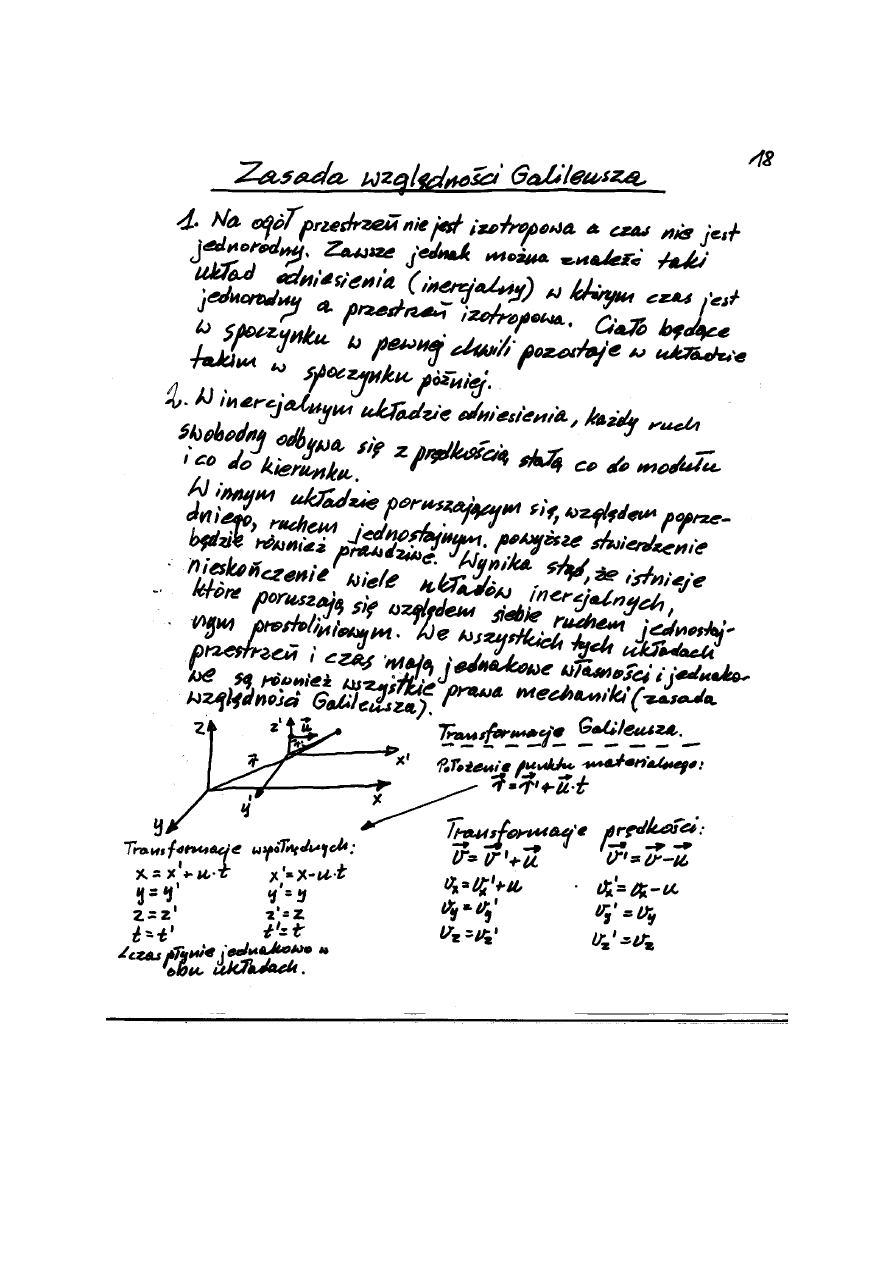 18
Zasada względności Galileusza
1. Na ogół przestrzeń nie jest izotropowa a czas nie jest
jednorodny. Zawsze jednak można znaleźć taki
układ odniesienia (inercjalny) w którym czas jest
jednorodny a przestrzeń izotropowa. Ciało będące
w spoczynku w pewnej chwili pozostaje w układzie
takim w spoczynku później.
2. W inercjalnym układzie odniesienia, każdy ruch
swobodny odbywa się z prędkością stałą co do modułu
i co do kierunku.
W innym układzie poruszającym się, względem poprze-
dniego, ruchem jednostajnym. powyższe stwierdzenie
będzie również prawdziwe. Wynika stąd, że istnieje
nieskończenie wiele układów inercjalnych,
które poruszają się względem siebie ruchem jednostaj-
nym prostoliniowym. We wszystkich tych układach
przestrzeń i czas mają jednakowe własności i jednako-
we są również wszystkie prawa mechaniki (zasada
względności Galileusza).
z z' u⃗
r⃗ r⃗' x'
y' x
y
Transformacje Galileusza.
Położenie punktu materialnego:
r⃗ = r⃗' + u⃗·t
Transformacje współrzędnych:
x = x' + u·t x' = x - u·t
y = y' y' = y
z = z' z' = z
t = t' t' = t
czas płynie jednakowo w
obu układach.
Transformacje prędkości:
v⃗ = v⃗' + u⃗ v⃗' = v⃗ - u⃗
vₓ = vₓ' + u vₓ' = vₓ - u
v_y = v_y' v_y' = v_y
v_z = v_z' v_z' = v_z